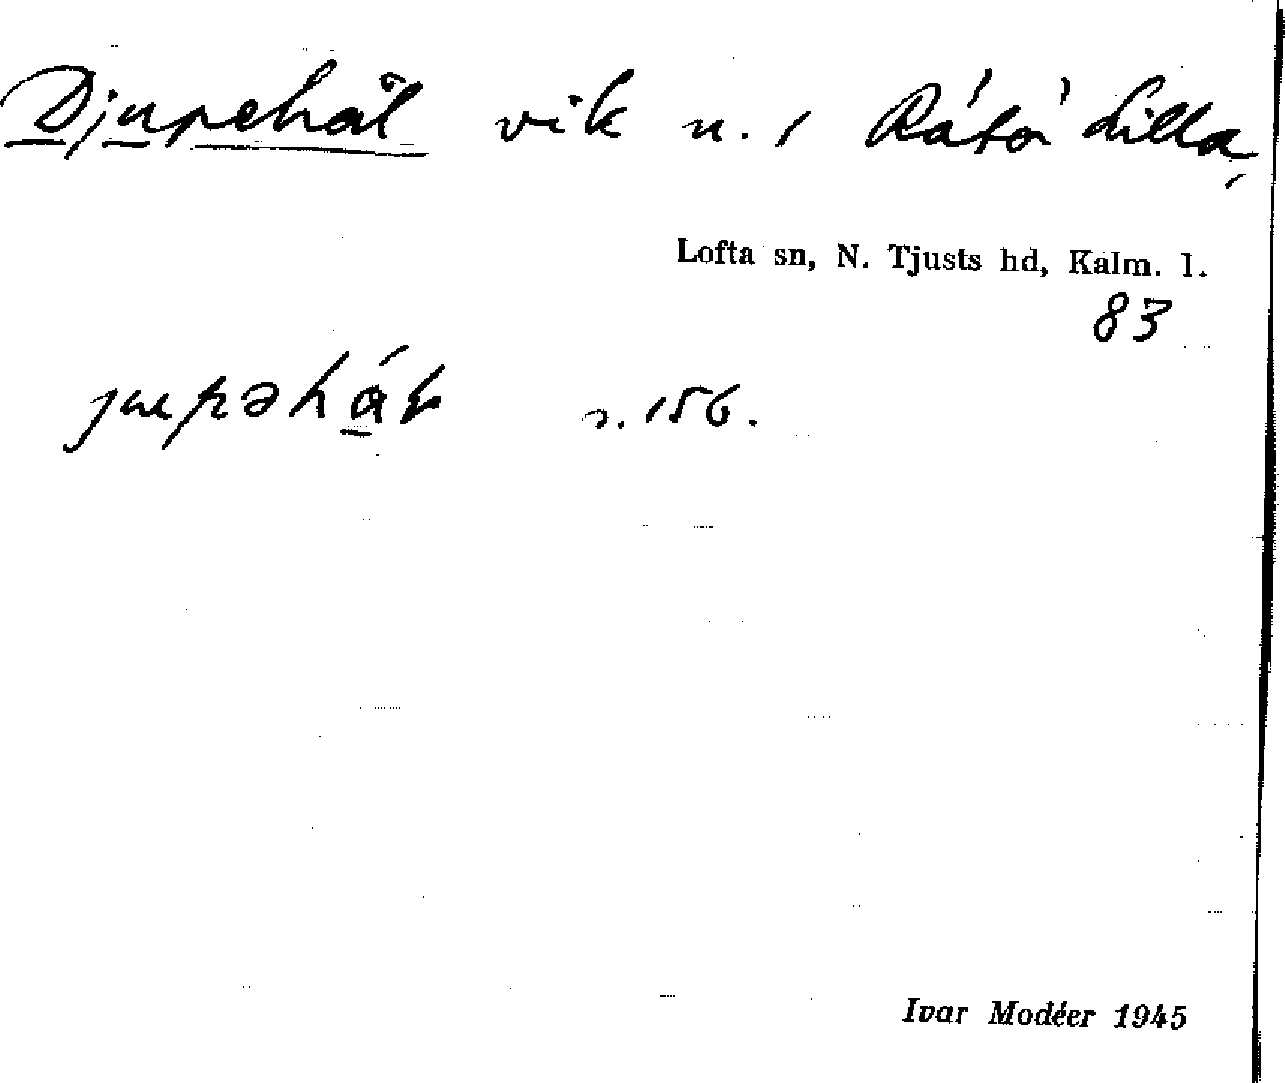 Djupehål vik n. i Råtö lilla,
Lofta sn, N. Tjusts hd, Kalm. l.
83
s. 156.
Ivar Modéer 1945